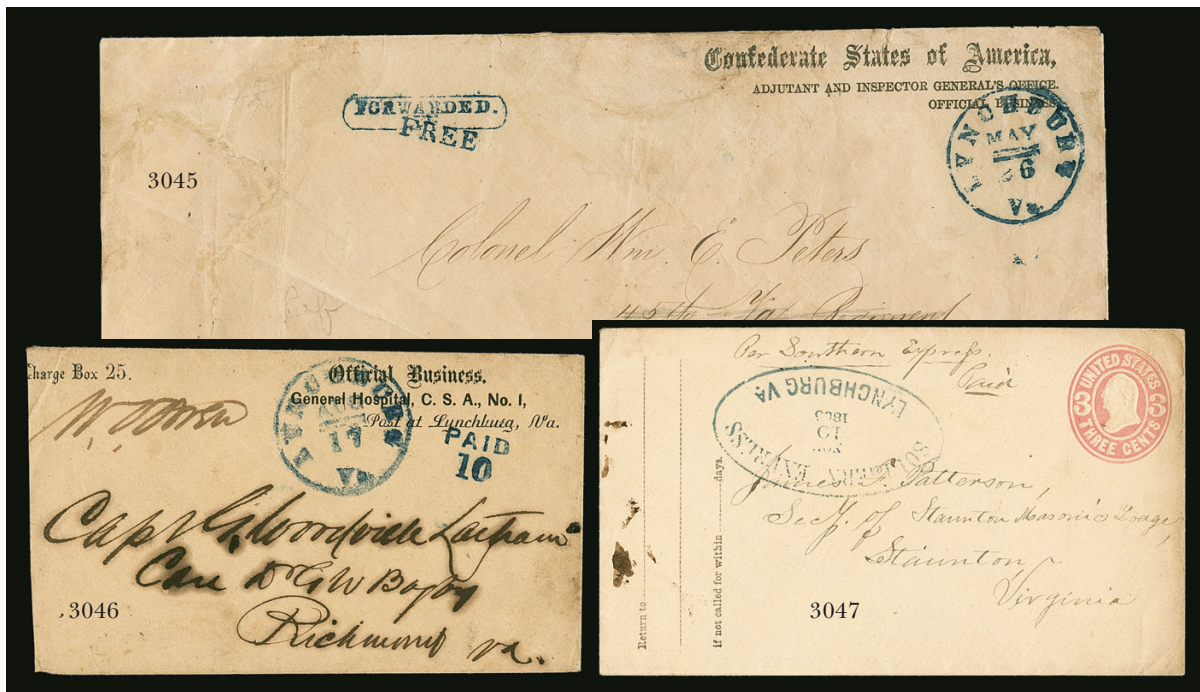 Confederate States of America,
ADJUTANT AND INSPECTOR GENERAL'S OFFICE.
OFFICIAL BUSINESS.
FORWARDED.
FREE
LYNCHBURG
MAY
26
Va.
3045
Colonel Wm. E. Peters
45th Va. Regiment
Charge Box 25.
Official Business,
General Hospital, C. S. A., No. 1,
Post at Lynchburg, Va.
LYNCHBURG
AUG
17
Va.
PAID
10
Capt G. Woodville Latham
Care Dr G W Bagby
Richmond Va.
3046
Per Southern Express.
Paid
UNITED STATES
3 3
THREE CENTS
SOUTHERN EXPRESS
NOV
10
1865
LYNCHBURG VA
James F. Patterson,
Secy. of Staunton Masonic Lodge,
Staunton,
Virginia
Return to
if not called for within days.
3047